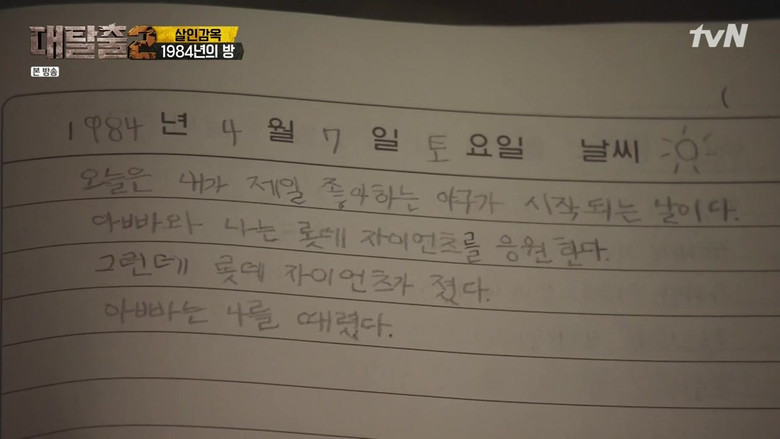 대탈출2
살인감옥
1984년의 방
tvN
본 방송
1984년 4월 7일 토요일 날씨
오늘은 내가 제일 좋아하는 야구가 시작되는 날이다.
아빠와 나는 롯데 자이언츠를 응원한다.
그런데 롯데 자이언츠가 졌다.
아빠는 나를 때렸다.